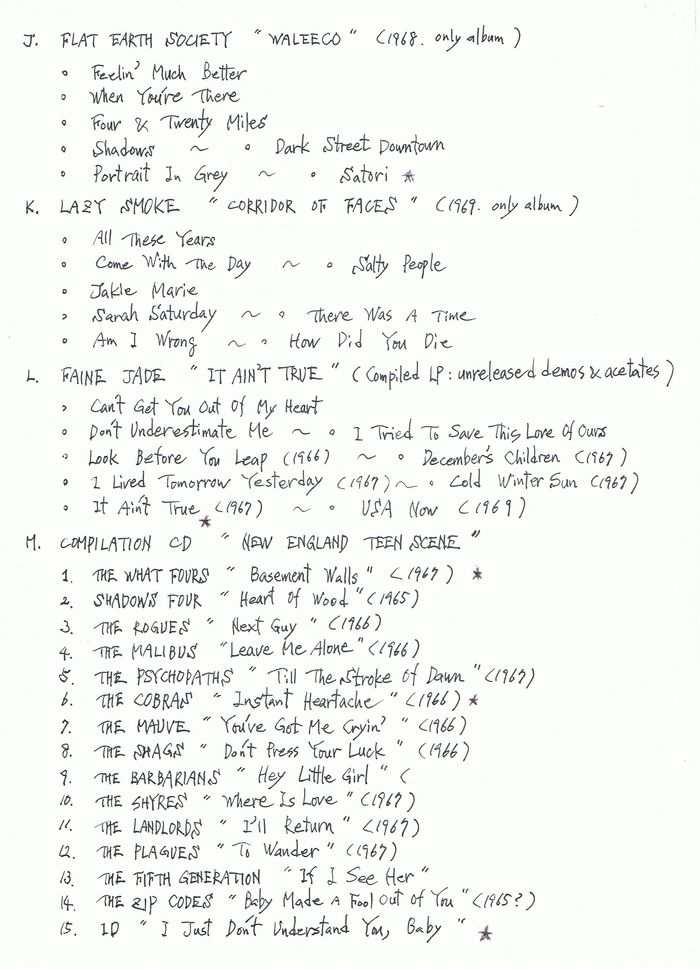 J. FLAT EARTH SOCIETY "WALEECO" (1968. only album)
• Feelin' Much Better
• When You're There
• Four & Twenty Miles
• Shadows ~ • Dark Street Downtown
• Portrait In Grey ~ • Satori ★
K. LAZY SMOKE "CORRIDOR OF FACES" (1969. only album)
• All These Years
• Come With The Day ~ • Salty People
• Jakle Marie
• Sarah Saturday ~ • There Was A Time
• Am I Wrong ~ • How Did You Die
L. FAINE JADE "IT AIN'T TRUE" (Compiled LP: unreleased demos & acetates)
• Can't Get You Out Of My Heart
• Don't Underestimate Me ~ • I Tried To Save This Love Of Ours
• Look Before You Leap (1966) ~ • December's Children (1967)
• I Lived Tomorrow Yesterday (1967) ~ • Cold Winter Sun (1967)
• It Ain't True ★ (1967) ~ • USA Now (1969)
M. COMPILATION CD "NEW ENGLAND TEEN SCENE"
1. THE WHAT FOURS "Basement Walls" (1967) ★
2. SHADOWS FOUR "Heart Of Wood" (1965)
3. THE ROGUES "Next Guy" (1966)
4. THE MALIBUS "Leave Me Alone" (1966)
5. THE PSYCHOPATHS "Till The Stroke Of Dawn" (1967)
6. THE COBRAS "Instant Heartache" (1966) ★
7. THE MAUVE "You've Got Me Cryin'" (1966)
8. THE SHAGS "Don't Press Your Luck" (1966)
9. THE BARBARIANS "Hey Little Girl" (
10. THE SHYRES "Where Is Love" (1967)
11. THE LANDLORDS "I'll Return" (1967)
12. THE PLAGUES "To Wander" (1967)
13. THE FIFTH GENERATION "If I See Her"
14. THE ZIP CODES "Baby Made A Fool Out Of You" (1965?)
15. ID "I Just Don't Understand You, Baby" ★